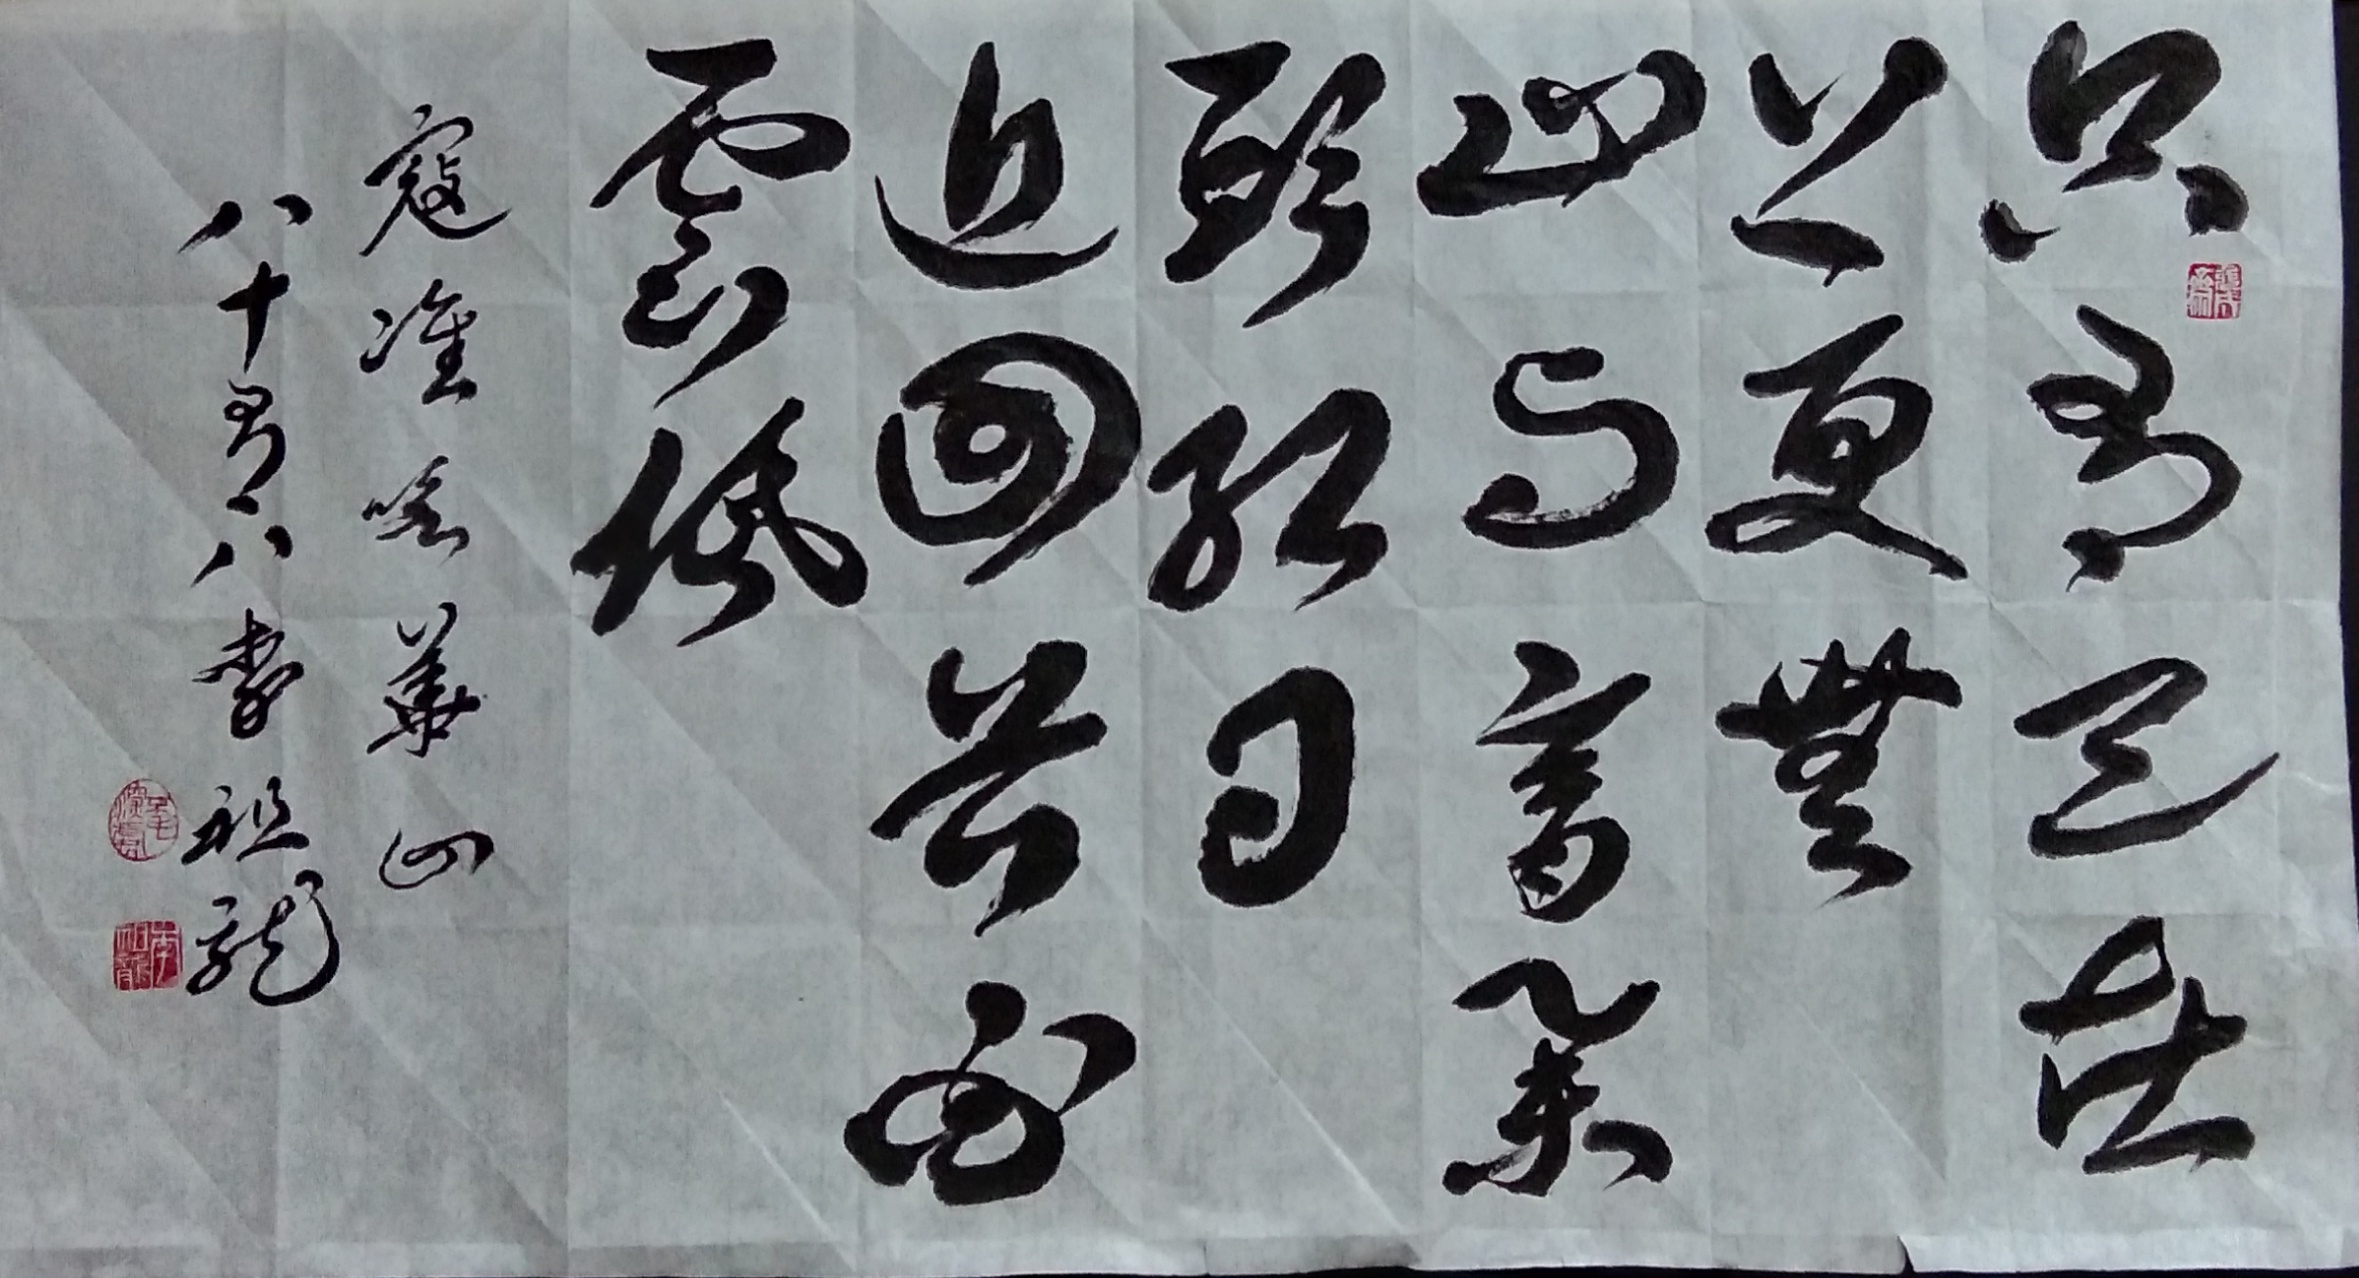 只有天在
上更無
山与齊舉
頭紅日
近回首白
雲低
寇準咏華山
八十有八李祖龍